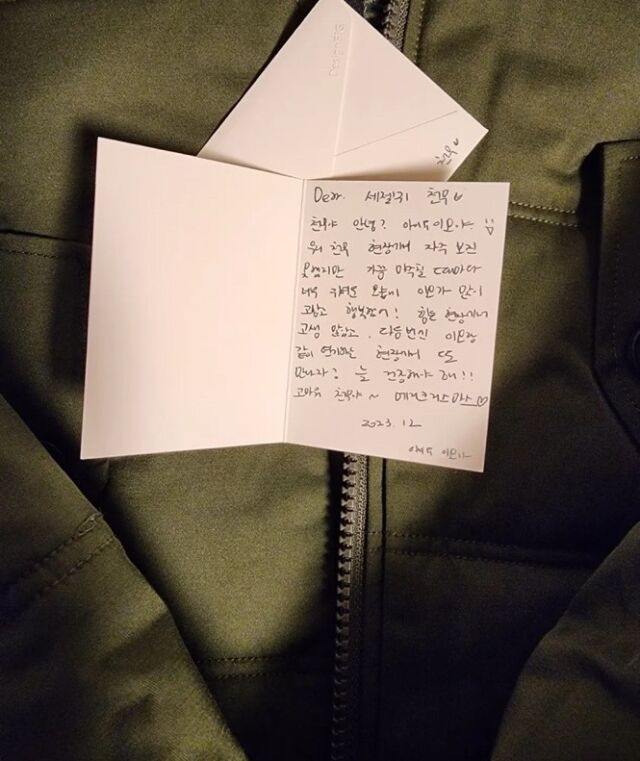 천우 ♥
Dear. 세젤귀 천우 ♥
천우야 안녕? 이모야
우리 천우 현장에서 자주 보진
못했지만 가끔 마주칠 때마다
너무 귀여운 모습에 이모가 많이
고맙고 행복했어! 힘든 현장에서
고생 많았고, 다음번엔 이모랑
같이 연기하는 현장에서 또
만나자? 늘 건강해야 해!!
고마워 천우야 ~ 메리크리스마스 ♡
2023. 12
이모가